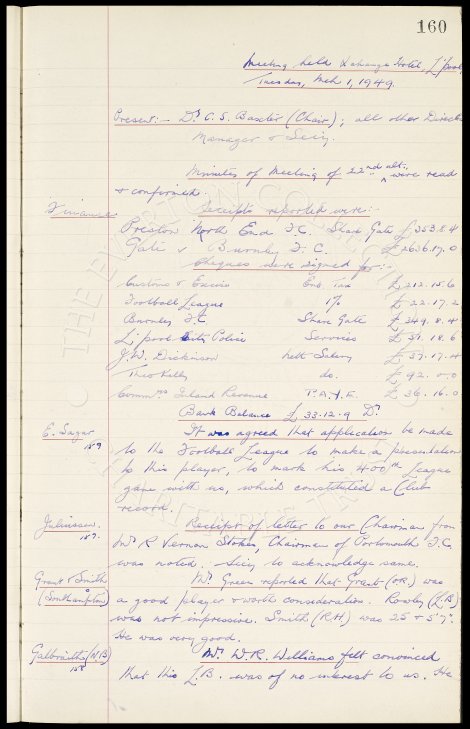 160
Meeting held Exchange Hotel, L'pool,
Tuesday, Mch 1, 1949.
Present:- Dr C. S. Baxter (Chair); all other Directo
Manager & Secy.
Minutes of Meeting of 22nd ult. were read
& confirmed.
Finance Receipts reported were:-
Preston North End F.C. Share Gate £353.8.4
Gate v Burnley F.C. £2636.17.0
Cheques were signed for:-
Customs & Excise Ent. Tax £212.15.6
Football League 1% £22.17.2
Burnley F.C. Share Gate £349.8.4
L'pool City Police Services £51.18.6
J.W. Dickinson nett Salary £37.17.4
Theo Kelly do. £92.0.0
Commrs Inland Revenue P.A.Y.E. £36.16.0
Bank Balance £33.12.9 Dr
E. Sagar It was agreed that application be made
159 to the Football League to make a presentation
to this player, to mark his 400th League
game with us, which constituted a Club
record.
Juliussen. Receipt of letter to our Chairman from
157. Mr R Vernon Stokes, Chairman of Portsmouth F.C.
was noted. Secy to acknowledge same.
Grant & Smith Mr Green reported that Grant (OR) was
(Southampton) a good player & worth consideration. Rowley (L.B)
was not impressive. Smith (R.H) was 25 & 5'7".
He was very good.
Galbraith (N.B) Mr W.R. Williams felt convinced
158 that this L.B. was of no interest to us. He